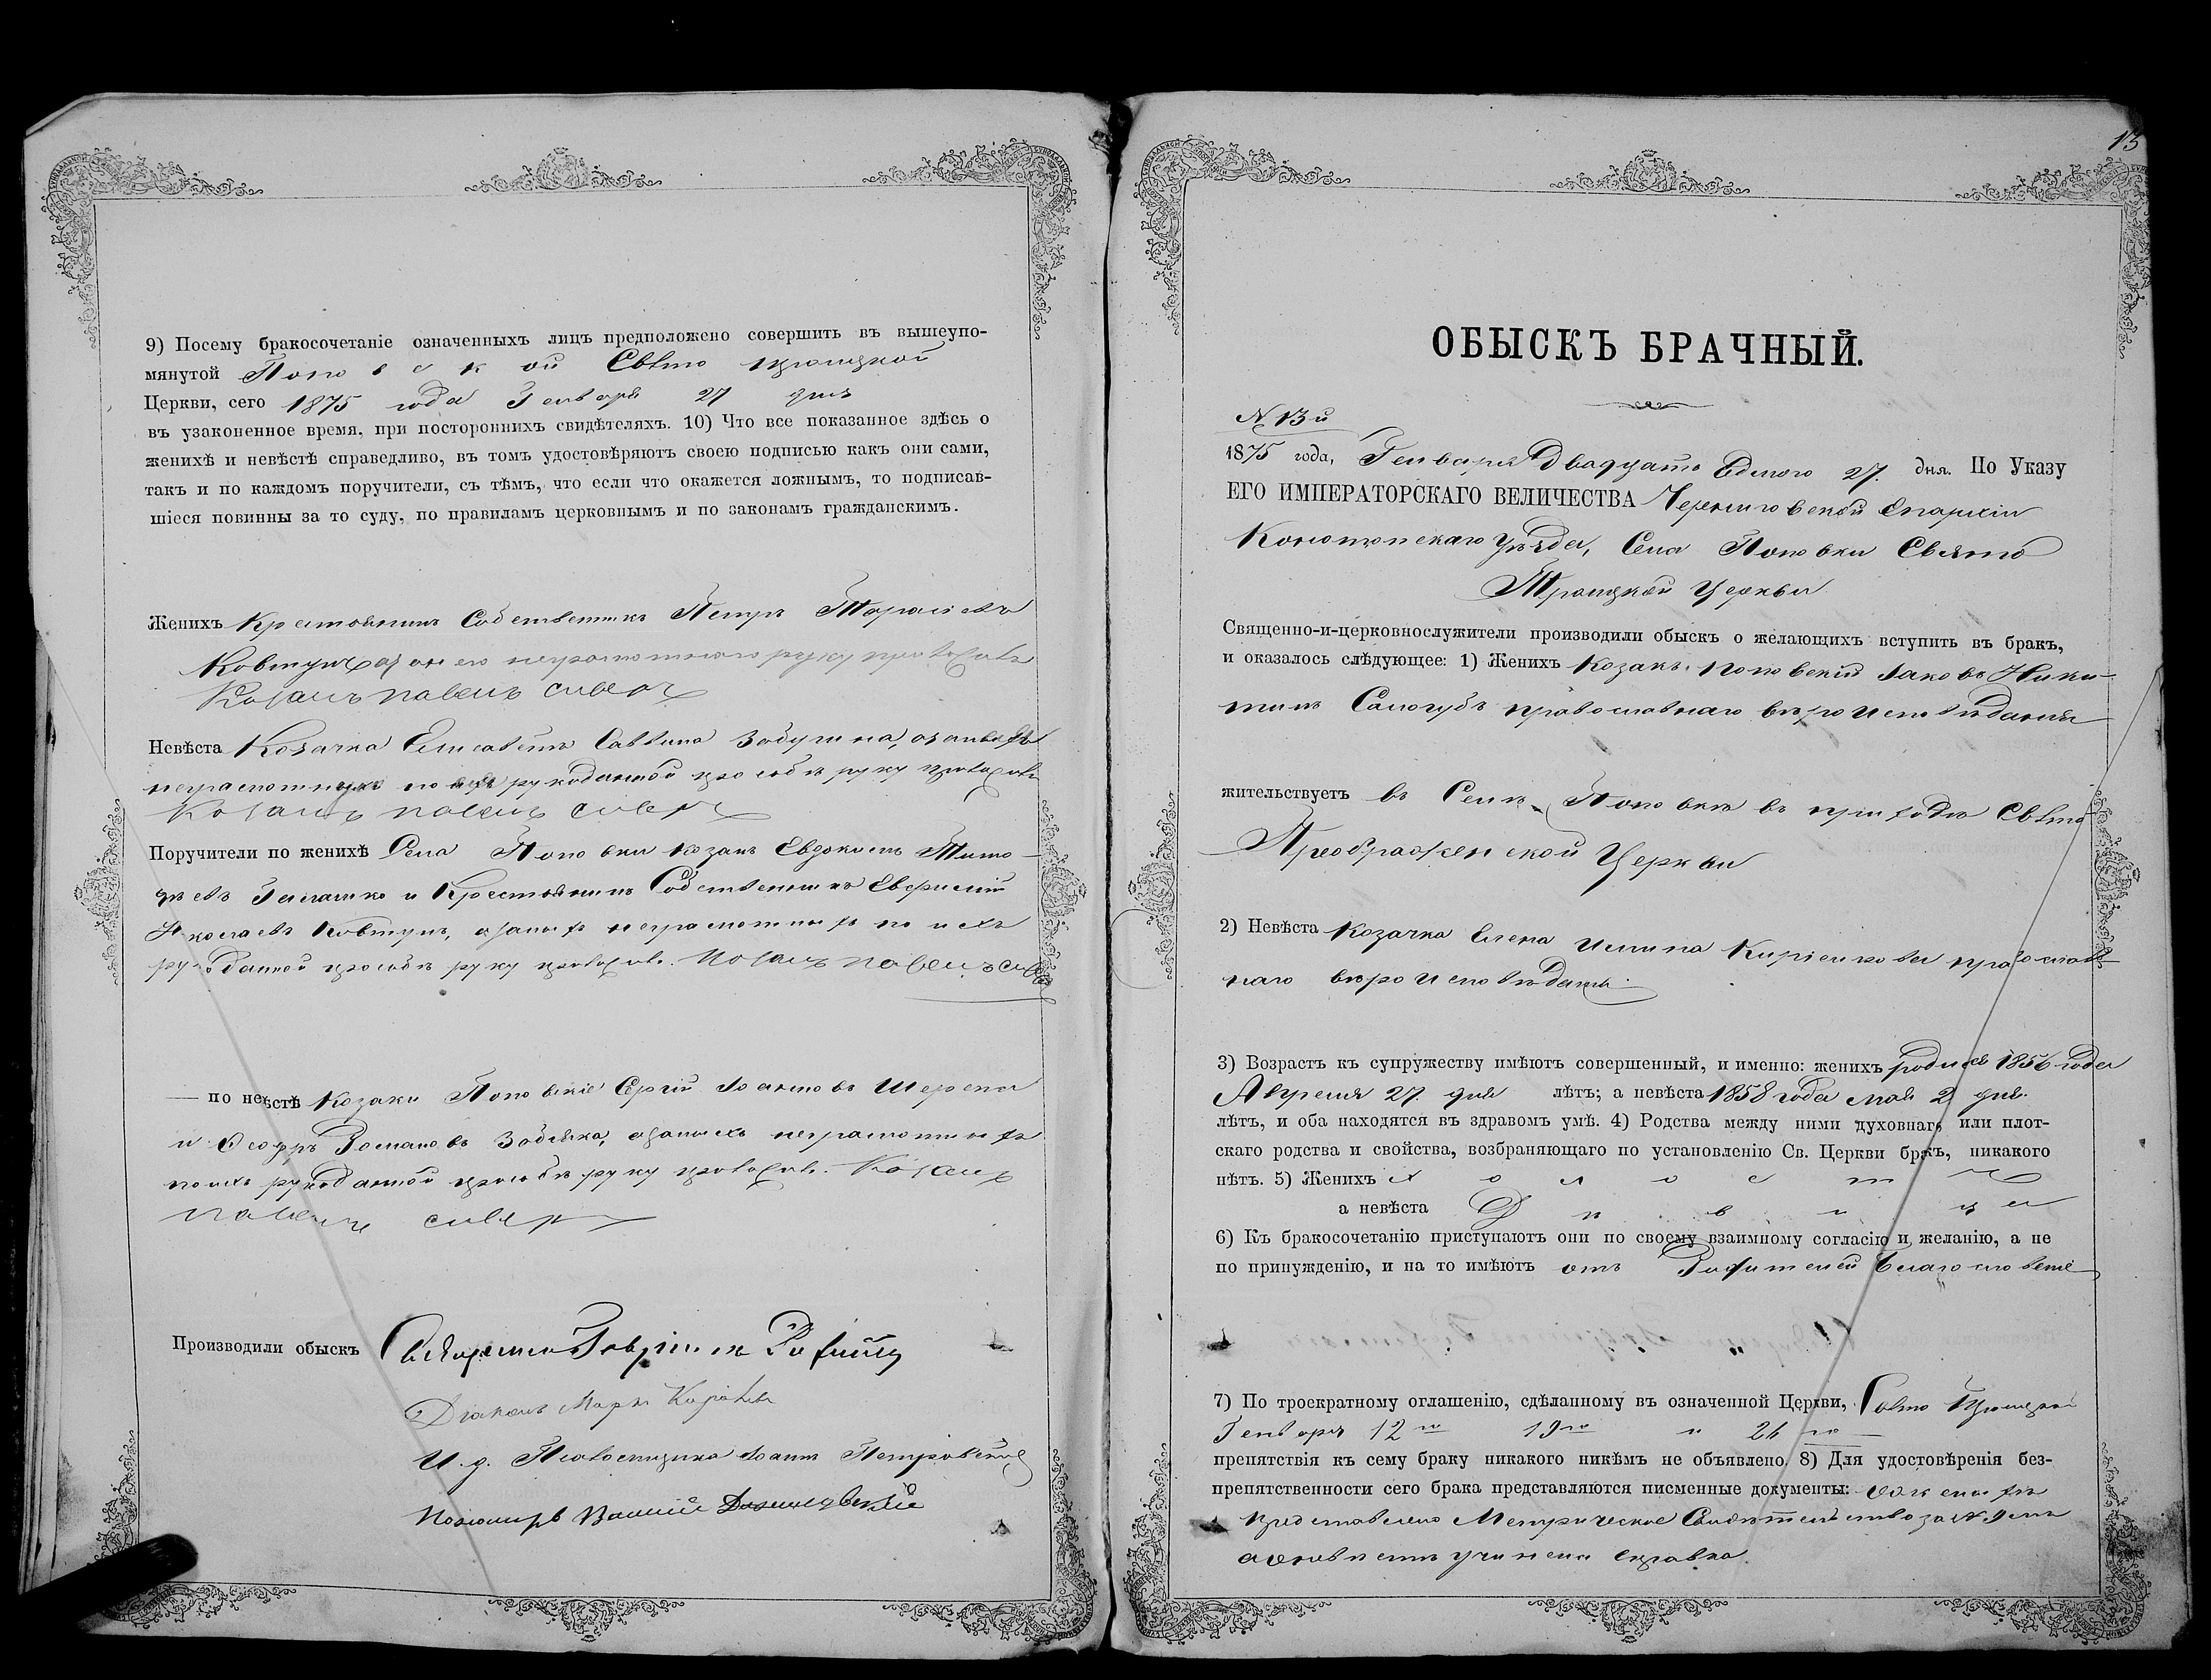 9) Посему бракосочетаніе означенныхъ лицъ предположено совершить въ вышеупо-
мянутой Поповской Свято Троицкой
Церкви, сего 1875 года Генваря 27 дня
въ узаконенное время, при постороннихъ свидѣтеляхъ. 10) Что все показанное здѣсь о
женихѣ и невѣстѣ справедливо, въ томъ удостовѣряютъ своею подписью какъ они сами,
такъ и по каждомъ поручители, съ тѣмъ, что если что окажется ложнымъ, то подписав-
шіеся повинны за то суду, по правиламъ церковнымъ и по законамъ гражданскимъ.
Женихъ Крестьянинъ Собственникъ Петръ Тарасіевъ
Ковтунъ а за него неграмотнаго руку приложилъ
Козакъ павелъ сиверъ
Невѣста Козачка Елисавета Саввина
неграмотную по рукоданной прозьбѣ руку приложилъ
Козакъ павелъ сиверъ
Поручители по женихѣ Села Поповки Козакъ Евдокимъ
и Крестьянинъ Собственникъ Евфимій
Ковтунъ, а за нихъ неграмотныхъ по ихъ
рукоданной прозьбѣ руку приложилъ Козакъ павелъ сиверъ
— по невѣстѣ Козаки Поповскіе Сергій Іоанновъ
и Ѳеодоръ Романовъ а за нихъ неграмотныхъ
по ихъ рукоданной прозьбѣ руку приложилъ Козакъ
павелъ сиверъ
Производили обыскъ Священникъ Гавріилъ
Діаконъ Маркъ
И. д. Псаломщика Іоаннъ Петровскій
Пономарь
13
ОБЫСКЪ БРАЧНЫЙ.
№ 13й
1875 года, Генваря Двадцать Седмого 27. дня. По Указу
ЕГО ИМПЕРАТОРСКАГО ВЕЛИЧЕСТВА Черниговской Епархіи
Конотопскаго Уѣзда, Села Поповки Свято
Троицкой Церкви
Священно-и-церковнослужители производили обыскъ о желающихъ вступить въ бракъ,
и оказалось слѣдующее: 1) Женихъ Козакъ Поповскій Іаковъ Ники-
тинъ Самогубъ православнаго вѣроисповѣданія
жительствуетъ въ Селѣ Поповкѣ въ приходѣ Свято
Преображенской Церкви
2) Невѣста Козачка Елена Киріенкова православ-
наго вѣроисповѣданія
3) Возрастъ къ супружеству имѣютъ совершенный, и именно: женихъ родился 1856 года
Апреля 27. дня лѣтъ; а невѣста 1858 года мая 2 дня.
лѣтъ, и оба находятся въ здравомъ умѣ. 4) Родства между ними духовнаго или плот-
скаго родства и свойства, возбраняющаго по установленію Св. Церкви бракъ, никакого
нѣтъ. 5) Женихъ холостъ
а невѣста Дѣвица
6) Къ бракосочетанію приступаютъ они по своему взаимному согласію и желанію, а не
по принужденію, и на то имѣютъ отъ Родителей благословеніе
7) По троекратному оглашенію, сдѣланному въ означенной Церкви, Свято Троицкой
Генваря 12го 19го и 26го
препятствія къ сему браку никакого никѣмъ не объявлено. 8) Для удостовѣренія без-
препятственности сего брака представляются писменные документы: о женихѣ
представлено Метрическое Свидѣтельство за №
а о невѣстѣ учинена справка.